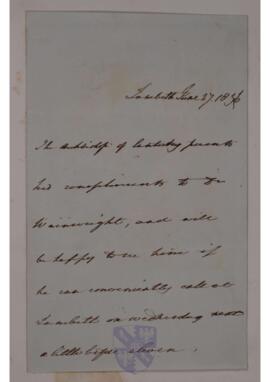 Lambeth June 27. 1836
The Archbishop of Canterbury presents
his compliments to Dr
Wainwright, and will
be happy to see him if
he can conveniently call at
Lambeth on Wednesday next
a little before eleven.